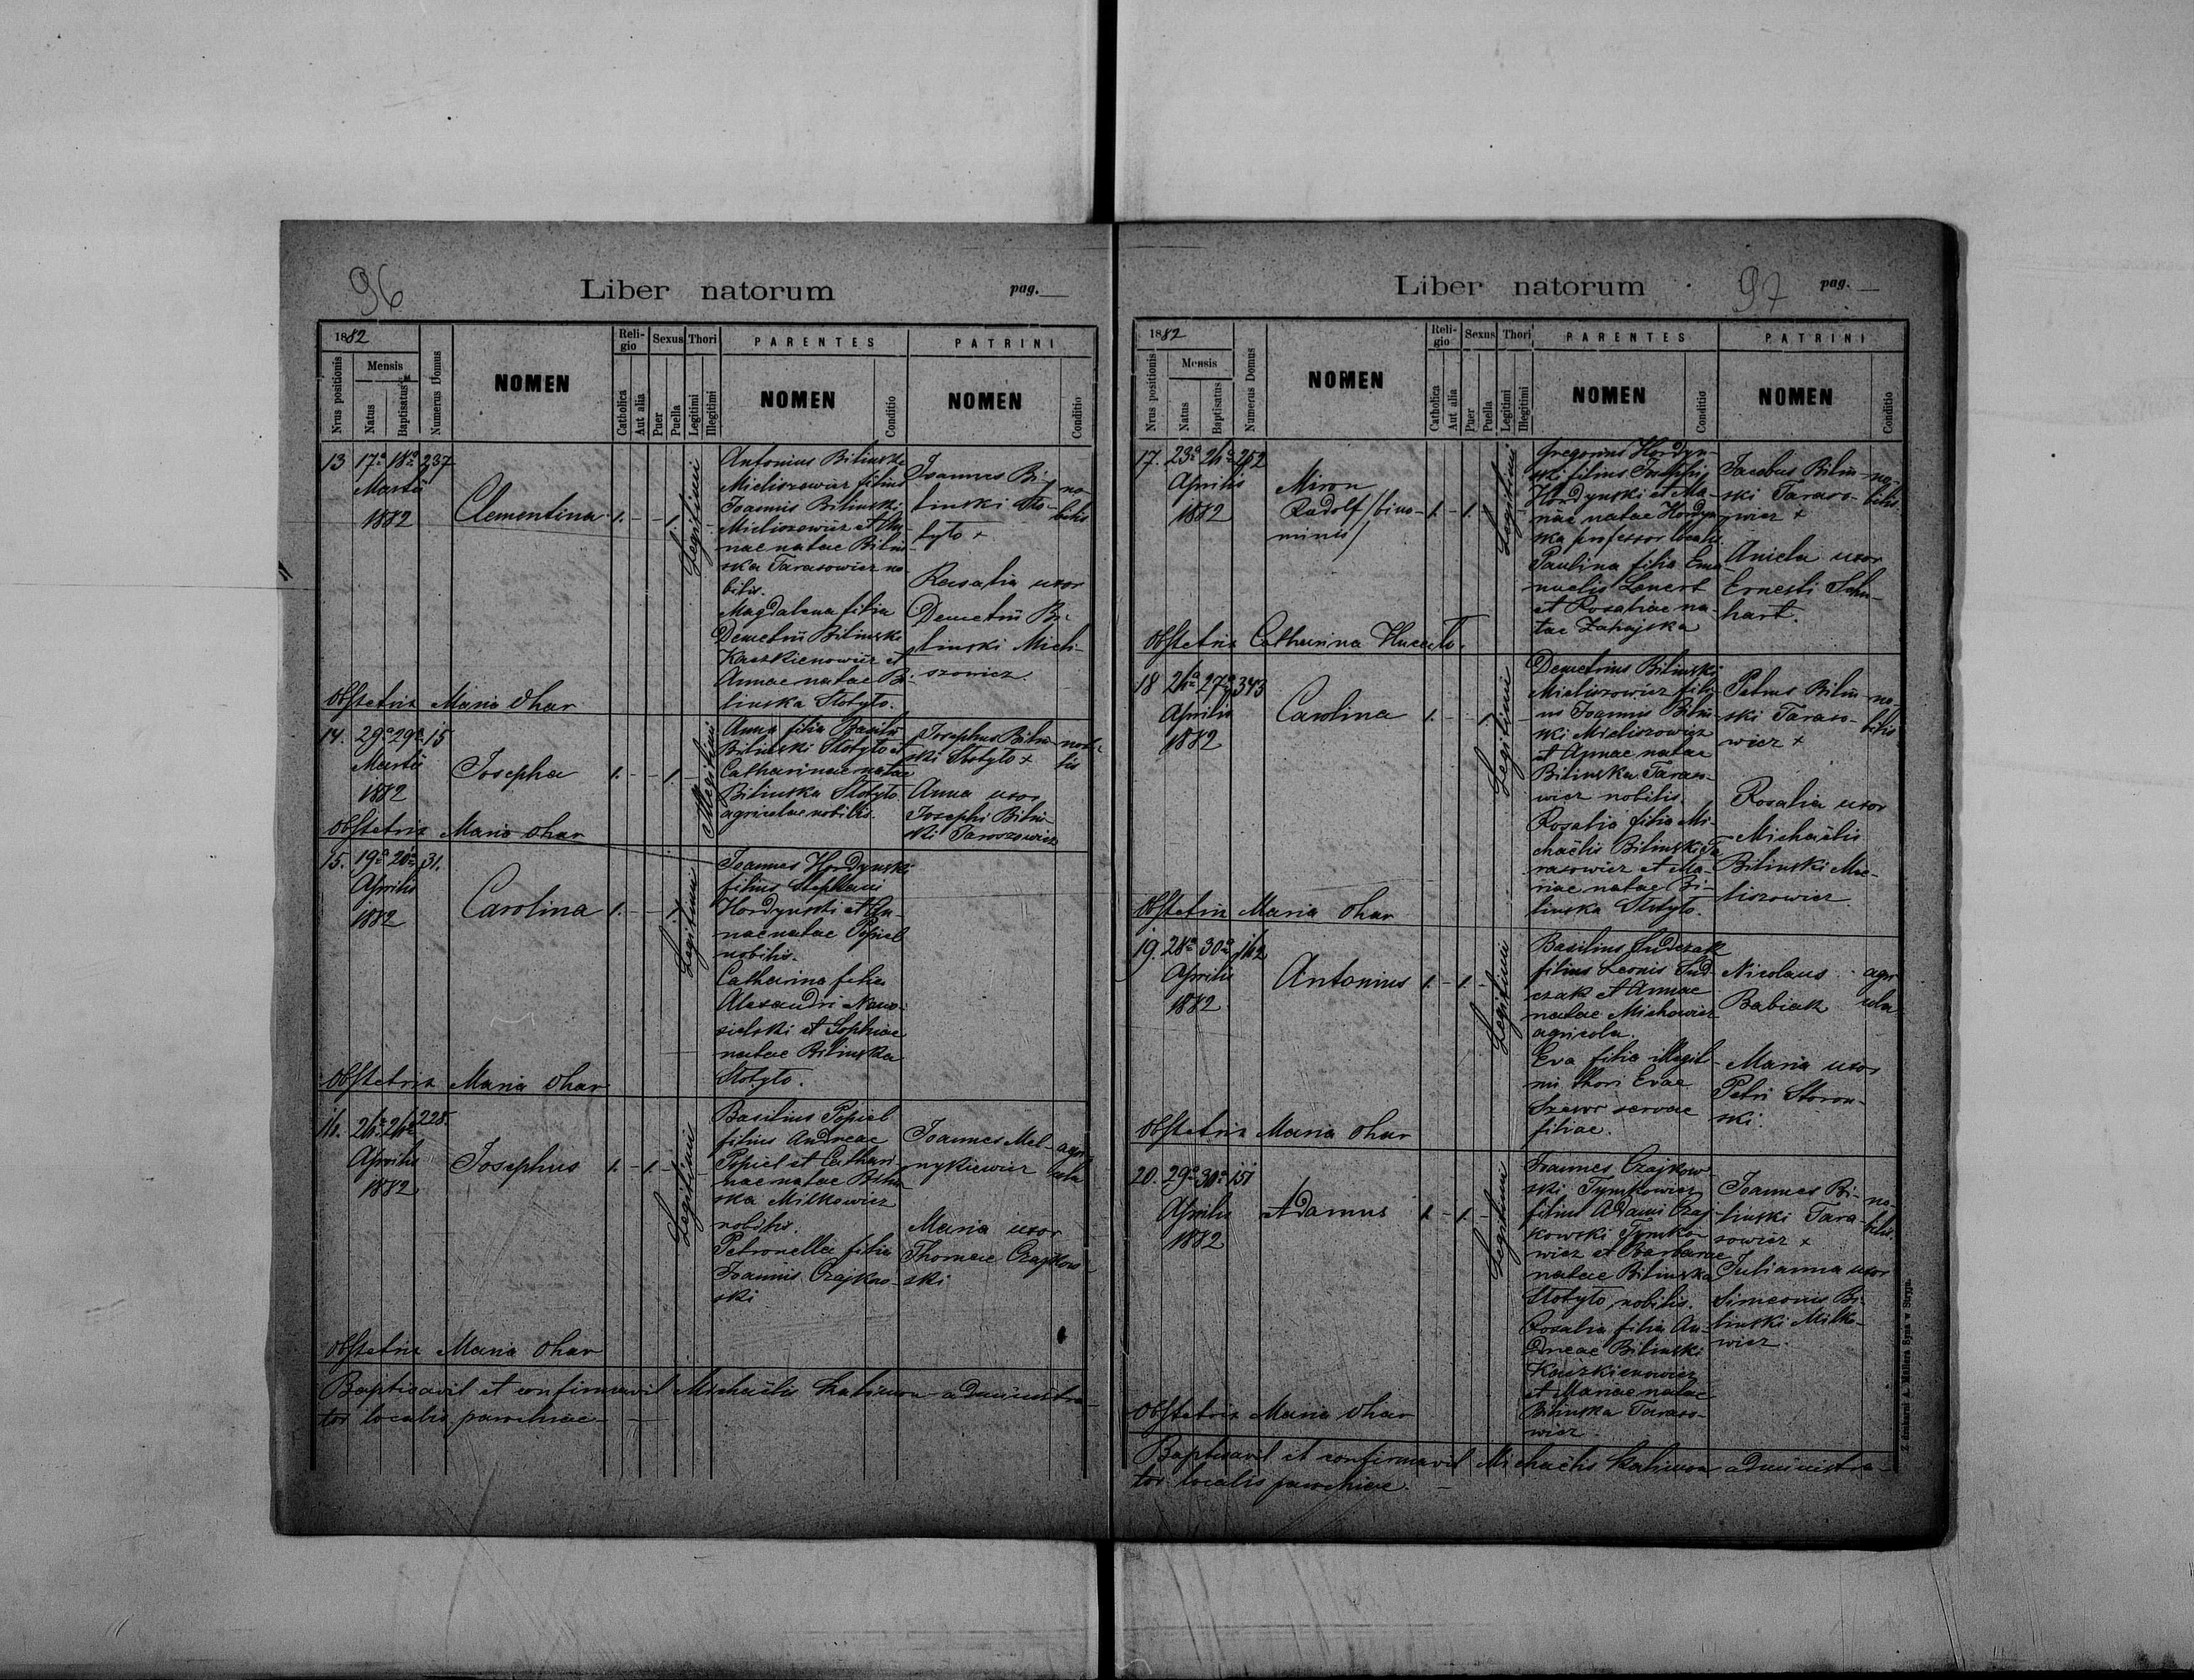 96
Liber natorum
pag.
1882
Religio
Sexus
Thori
PARENTES
PATRINI
Nrus positionis
Mensis
Natus
Baptisatus
Numerus Domus
NOMEN
Catholica
Aut alia
Puer
Puella
Legitimi
Illegitimi
NOMEN
Conditio
NOMEN
Conditio
13 17a 18a 237
Martii
1882
Clementina 1. - - 1.
Legitimi
Antonius Bilinski
Mieliszowicz filius
Joannis Bilinski
Mieliszowicz et An-
nae natae Bilin-
ska Tarasowicz no-
bilis.
Magdalena filia
Demetrii Bilinski
Kaszkienowicz et
Annae natae Bi-
linska Stotyto.
Joannes Bi-
linski Sto-
tyto +
no-
bilis
Rosalia uxor
Demetrii Bi-
linski Mieli-
szowicz.
Obstetrix Maria Ohar
14. 29a 29a 15
Martii
1882
Josepha 1. - - 1.
Illegitimi
Anna filia Basilii
Bilinski Stotyto et
Catharinae natae
Bilinska Stotyto
agricolae nobilis.
Josephus Bilin-
ski Stotyto +
nobi-
lis
Anna uxor
Josephi Bilin-
ski Taraszowicz
Obstetrix Maria Ohar
15. 19a 20a 31.
Aprilis
1882
Carolina 1. - - 1.
Legitimi
Joannes Hordynski
filius Stephani
Hordynski et An-
nae natae Popiel
nobilis.
Catharina filia
Alexandri Nowo-
sielski et Sophiae
natae Bilinska
Stotyto.
Obstetrix Maria Ohar
16. 26a 26a 228.
Aprilis
1882
Josephus 1. - 1. -
Legitimi
Basilius Popiel
filius Andreae
Popiel et Cathari-
nae natae Bilin-
ska Milkowicz
nobilis.
Petronella filia
Joannis Czajkow-
ski
Joannes Mel-
nykiewicz
agri-
cola
Maria uxor
Thomae Czajkow-
ski
Obstetrix Maria Ohar
Baptisavit et confirmavit Michaëlis Kalimon administra-
tor localis parochiae
Liber natorum
97
pag.
1882
Religio
Sexus
Thori
PARENTES
PATRINI
Nrus positionis
Mensis
Natus
Baptisatus
Numerus Domus
NOMEN
Catholica
Aut alia
Puer
Puella
Legitimi
Illegitimi
NOMEN
Conditio
NOMEN
Conditio
17. 23a 26a 252
Aprilis
1882
Miron
Rudolf /bino-
minis/
1. - 1. -
Legitimi
Gregorius Hordyn-
ski filius Josephi
Hordynski et Ma-
riae natae Hordyn-
ska professor localis.
Paulina filia Ema-
nuelis Lenert
et Rosaliae na-
tae Zahajska
Jacobus Bilin-
ski Taraso-
wicz +
no-
bilis.
Aniela uxor
Ernesti Schu-
hart.
Obstetrix Catharina
18 26a 27a 343
Aprilis
1882
Carolina 1. - - 1.
Legitimi
Demetrius Bilinski
Mieliszowicz fili-
us Joannis Bilin-
ski Mieliszowicz
et Annae natae
Bilinska Taraso-
wicz nobilis.
Rosalia filia Mi-
chaëlis Bilinski Ta-
rasowicz et Ma-
riae natae Bi-
linska Stotyto.
Petrus Bilin-
ski Taraso-
wicz +
no-
bilis
Rosalia uxor
Michaëlis
Bilinski Mie-
liszowicz.
Obstetrix Maria Ohar
19. 28a 30a 162
Aprilis
1882
Antonius 1. - 1. -
Legitimi
Basilius Sudczak
filius Leonis Sud-
czak et Annae
natae Michowicz
agricola.
Eva filia illegiti-
mi thori Evae
Szewc servae
filiae.
Nicolaus
Babiak
agri-
cola
Maria uxor
Petri Storon-
ski.
Obstetrix Maria Ohar
20. 29a 30a 151
Aprilis
1882
Adamus 1. - 1. -
Legitimi
Joannes Czajkow-
ski Tymkowicz
filius Adami Czaj-
kowski Tymko-
wicz et Barbarae
natae Bilinska
Stotyto, nobilis.
Rosalia filia An-
dreae Bilinski
Kaszkienowicz
et Mariae natae
Bilinska Taraso-
wicz.
Joannes Bi-
linski Tara-
sowicz +
no-
bilis.
Julianna uxor
Simeonis Bi-
linski Milko-
wicz.
Obstetrix Maria Ohar
Baptisavit et confirmavit Michaëlis Kalimon administra-
tor localis parochiae.
Z drukarni A. Müllera Syna w Stryju.